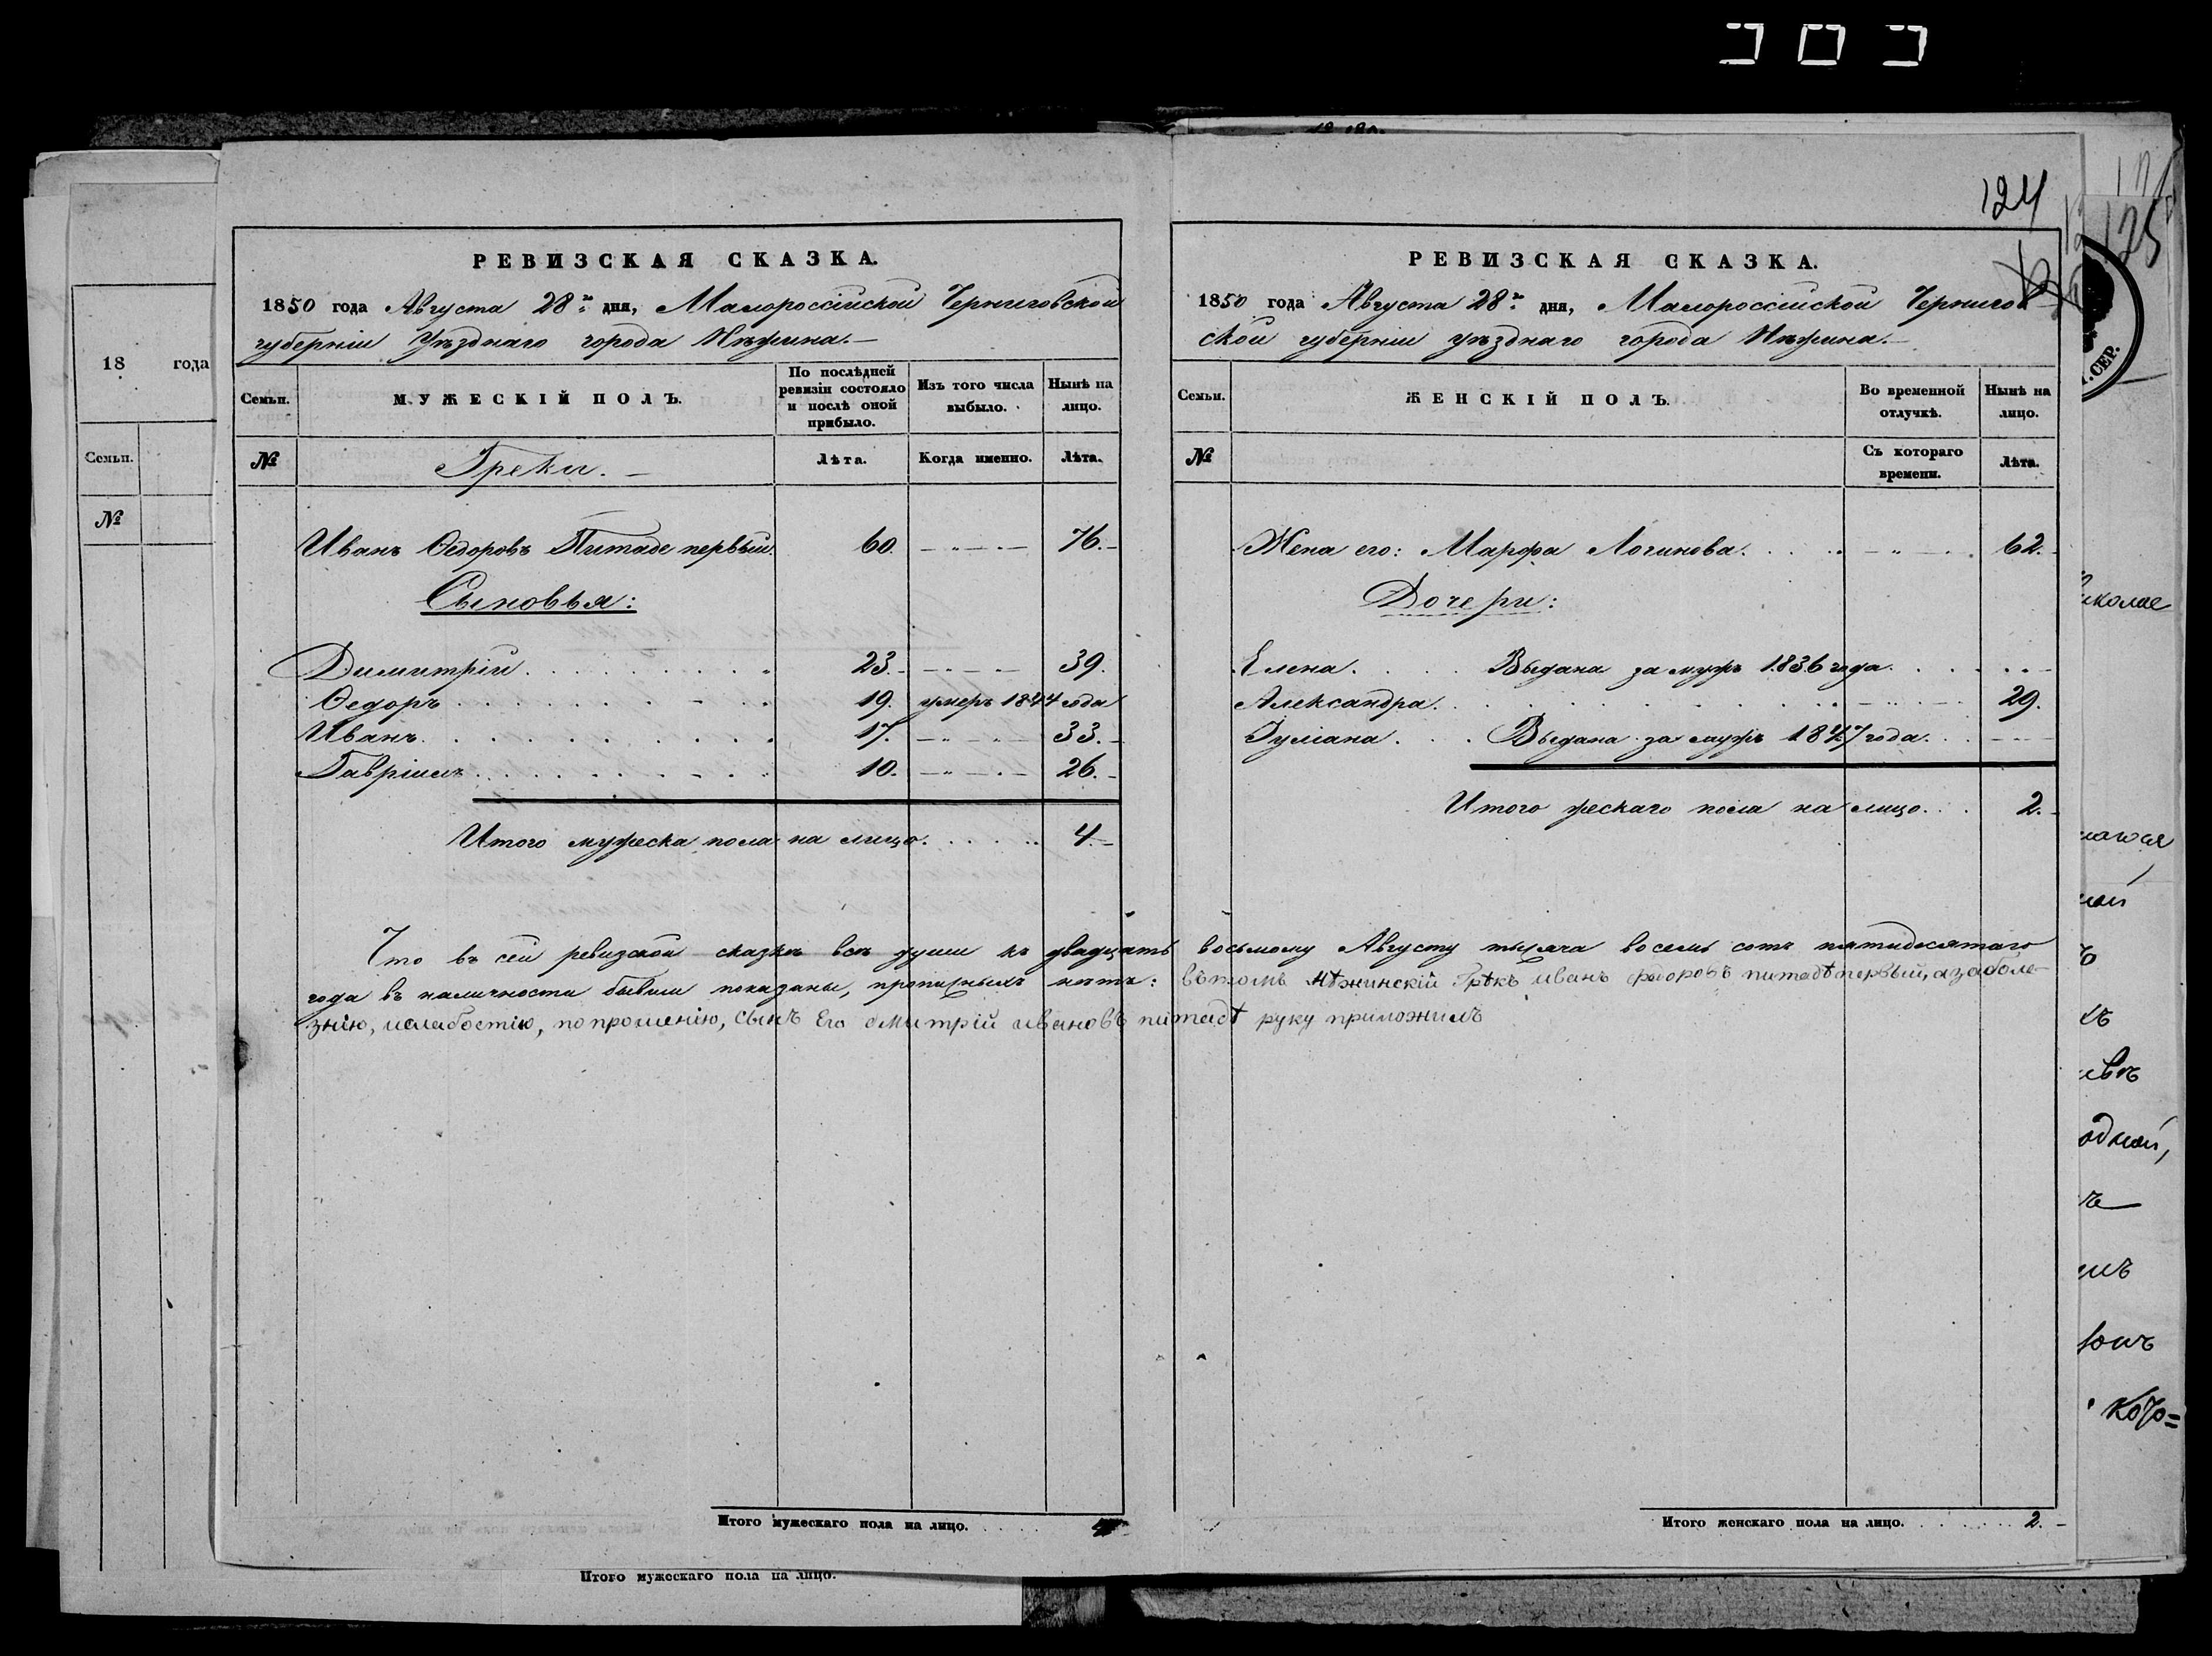 124
125
РЕВИЗСКАЯ СКАЗКА.
1850 года Августа 28го дня, Малороссійской Черниговской
губерніи Уѣзднаго города Нѣжина.
Семьи.
МУЖЕСКІЙ ПОЛЪ.
По послѣдней ревизіи состояло и послѣ оной прибыло.
Изъ того числа выбыло.
Нынѣ на лицо.
№
Греки.
Лѣта.
Когда именно.
Лѣта.
Иванъ Ѳедоровъ Питаде первый. 60. 76.
Сыновья:
Димитрій 23. 39.
Ѳедоръ 19. умеръ 1844 года
Иванъ 17. 33.
Гавріилъ 10. 26.
Итого мужеска пола на лицо. 4.
РЕВИЗСКАЯ СКАЗКА.
1850 года Августа 28го дня, Малороссійской Чернигов
ской губерніи уѣзднаго города Нѣжина.
Семьи.
ЖЕНСКІЙ ПОЛЪ.
Во временной отлучкѣ.
Нынѣ на лицо.
№
Съ котораго времени.
Лѣта.
Жена его: Марфа Логинова. 62.
Дочери:
Елена. Выдана за мужъ 1836 года.
Александра. 29.
Гуліана. Выдана за мужъ 1847 года.
Итого жескаго пола на лицо. 2.
Что въ сей ревизской сказкѣ всѣ души къ двадцать восьмому Августу тысяча восемь сотъ пятидесятаго
года въ наличности бывши показаны, прописныхъ нѣтъ: вътомъ Нѣжинскій Грѣкъ иванъ федоровъ питадѣ первый, а за боле-
знію, ислабостію, по прошенію, сынъ Его дмитрій ивановъ питадѣ руку приложилъ
Итого мужескаго пола на лицо. 4
Итого женскаго пола на лицо. 2.
18 года
Семьи.
№
Итого мужескаго пола на лицо.